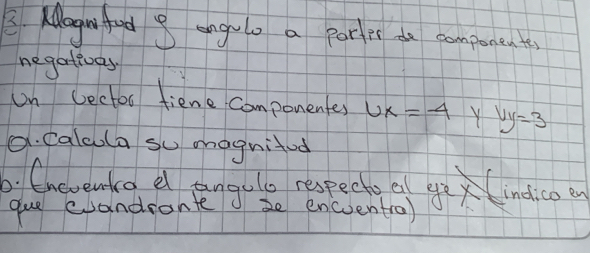 3. Magnitud y angulo a partir de componentes
negativas.
Un Vector tiene componentes Vx = -4 y Vy=3
a. Calcula su magnitud
b. Encuentra el angulo respecto al eje x (indica en
que cuandrante se encuentra)